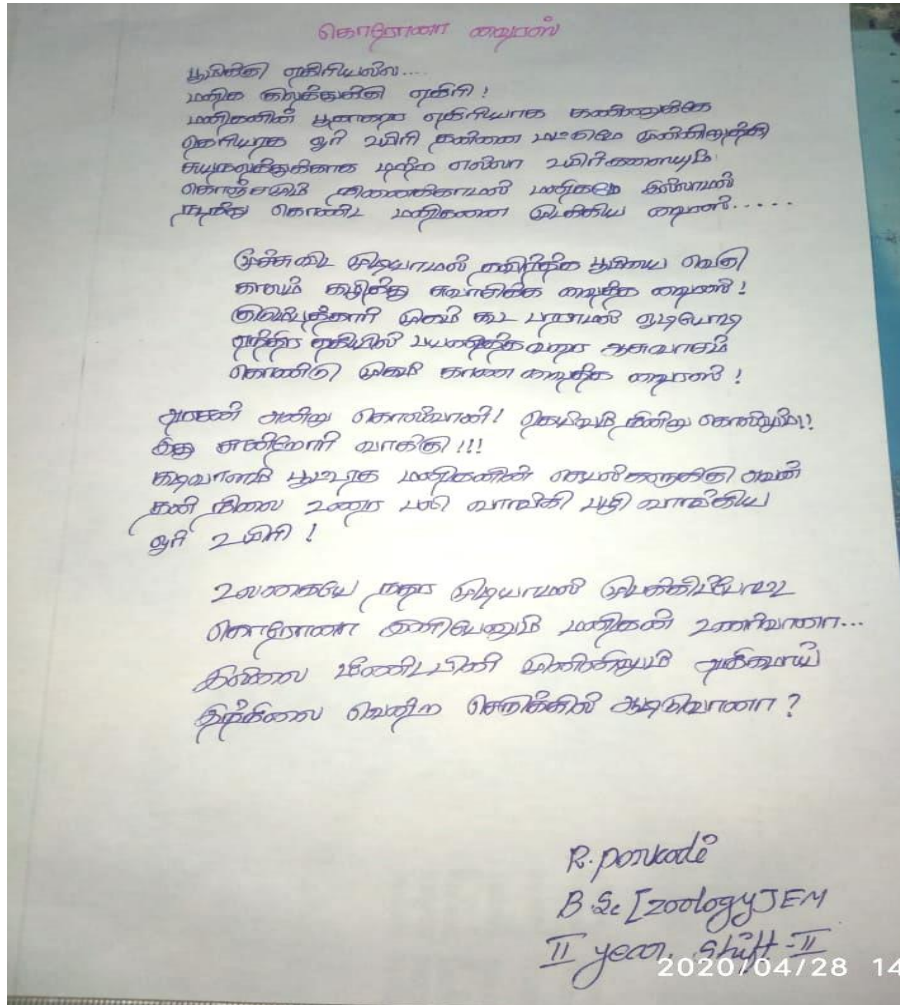 கொரோனா வைரஸ்
பூமிக்கு எதிரியல்ல....
மனித குலத்துக்கு எதிரி!
மனிதனின் எதிரியாக கண்ணுக்கே
தெரியாத ஓர் உயிரி தன்னை மட்டுமே முன்னிறுத்தி
சுயநலத்துக்காக மற்ற எல்லா உயிர்களையும்
கொஞ்சமும் நினைக்காமல் மனிதமே இல்லாமல்
நடந்து கொண்ட மனிதனை முடக்கிய வைரஸ்.....
மூச்சுவிட முடியாமல் தவிர்த்த பூமியை வெகு
காலம் கழித்து சுவாசிக்க வைத்த வைரஸ்!
குடும்பத்தார் முகம் கூட பாராமல் ஓடியோடி
எந்திர கதியில் பயணித்தவரை ஆசுவாசம்
கொண்டு முகம் காண வைத்த வைரஸ்!
அரசன் அன்று கொல்வான்! தெய்வம் நின்று கொல்லும்!!
இது சான்றோர் வாக்கு!!!
கடிவாளம் பூட்டாத மனிதனின் செயல்களுக்கு அவன்
தன் நிலை உணர பலி வாங்கி பழி வாங்கிய
ஓர் உயிரி!
உலகையே நகர முடியாமல் முடக்கிப்போட்ட
கொரோனா இனியேனும் மனிதன் உணர்வானா...
இல்லை மீண்டபின் இன்னும் அதிகமாய்
இந்நிலை வென்ற செருக்கில் ஆடிடுவானா?
R. Ponkodi
B.Sc [zoology] EM
II year, Shift-II
2020/04/28 14